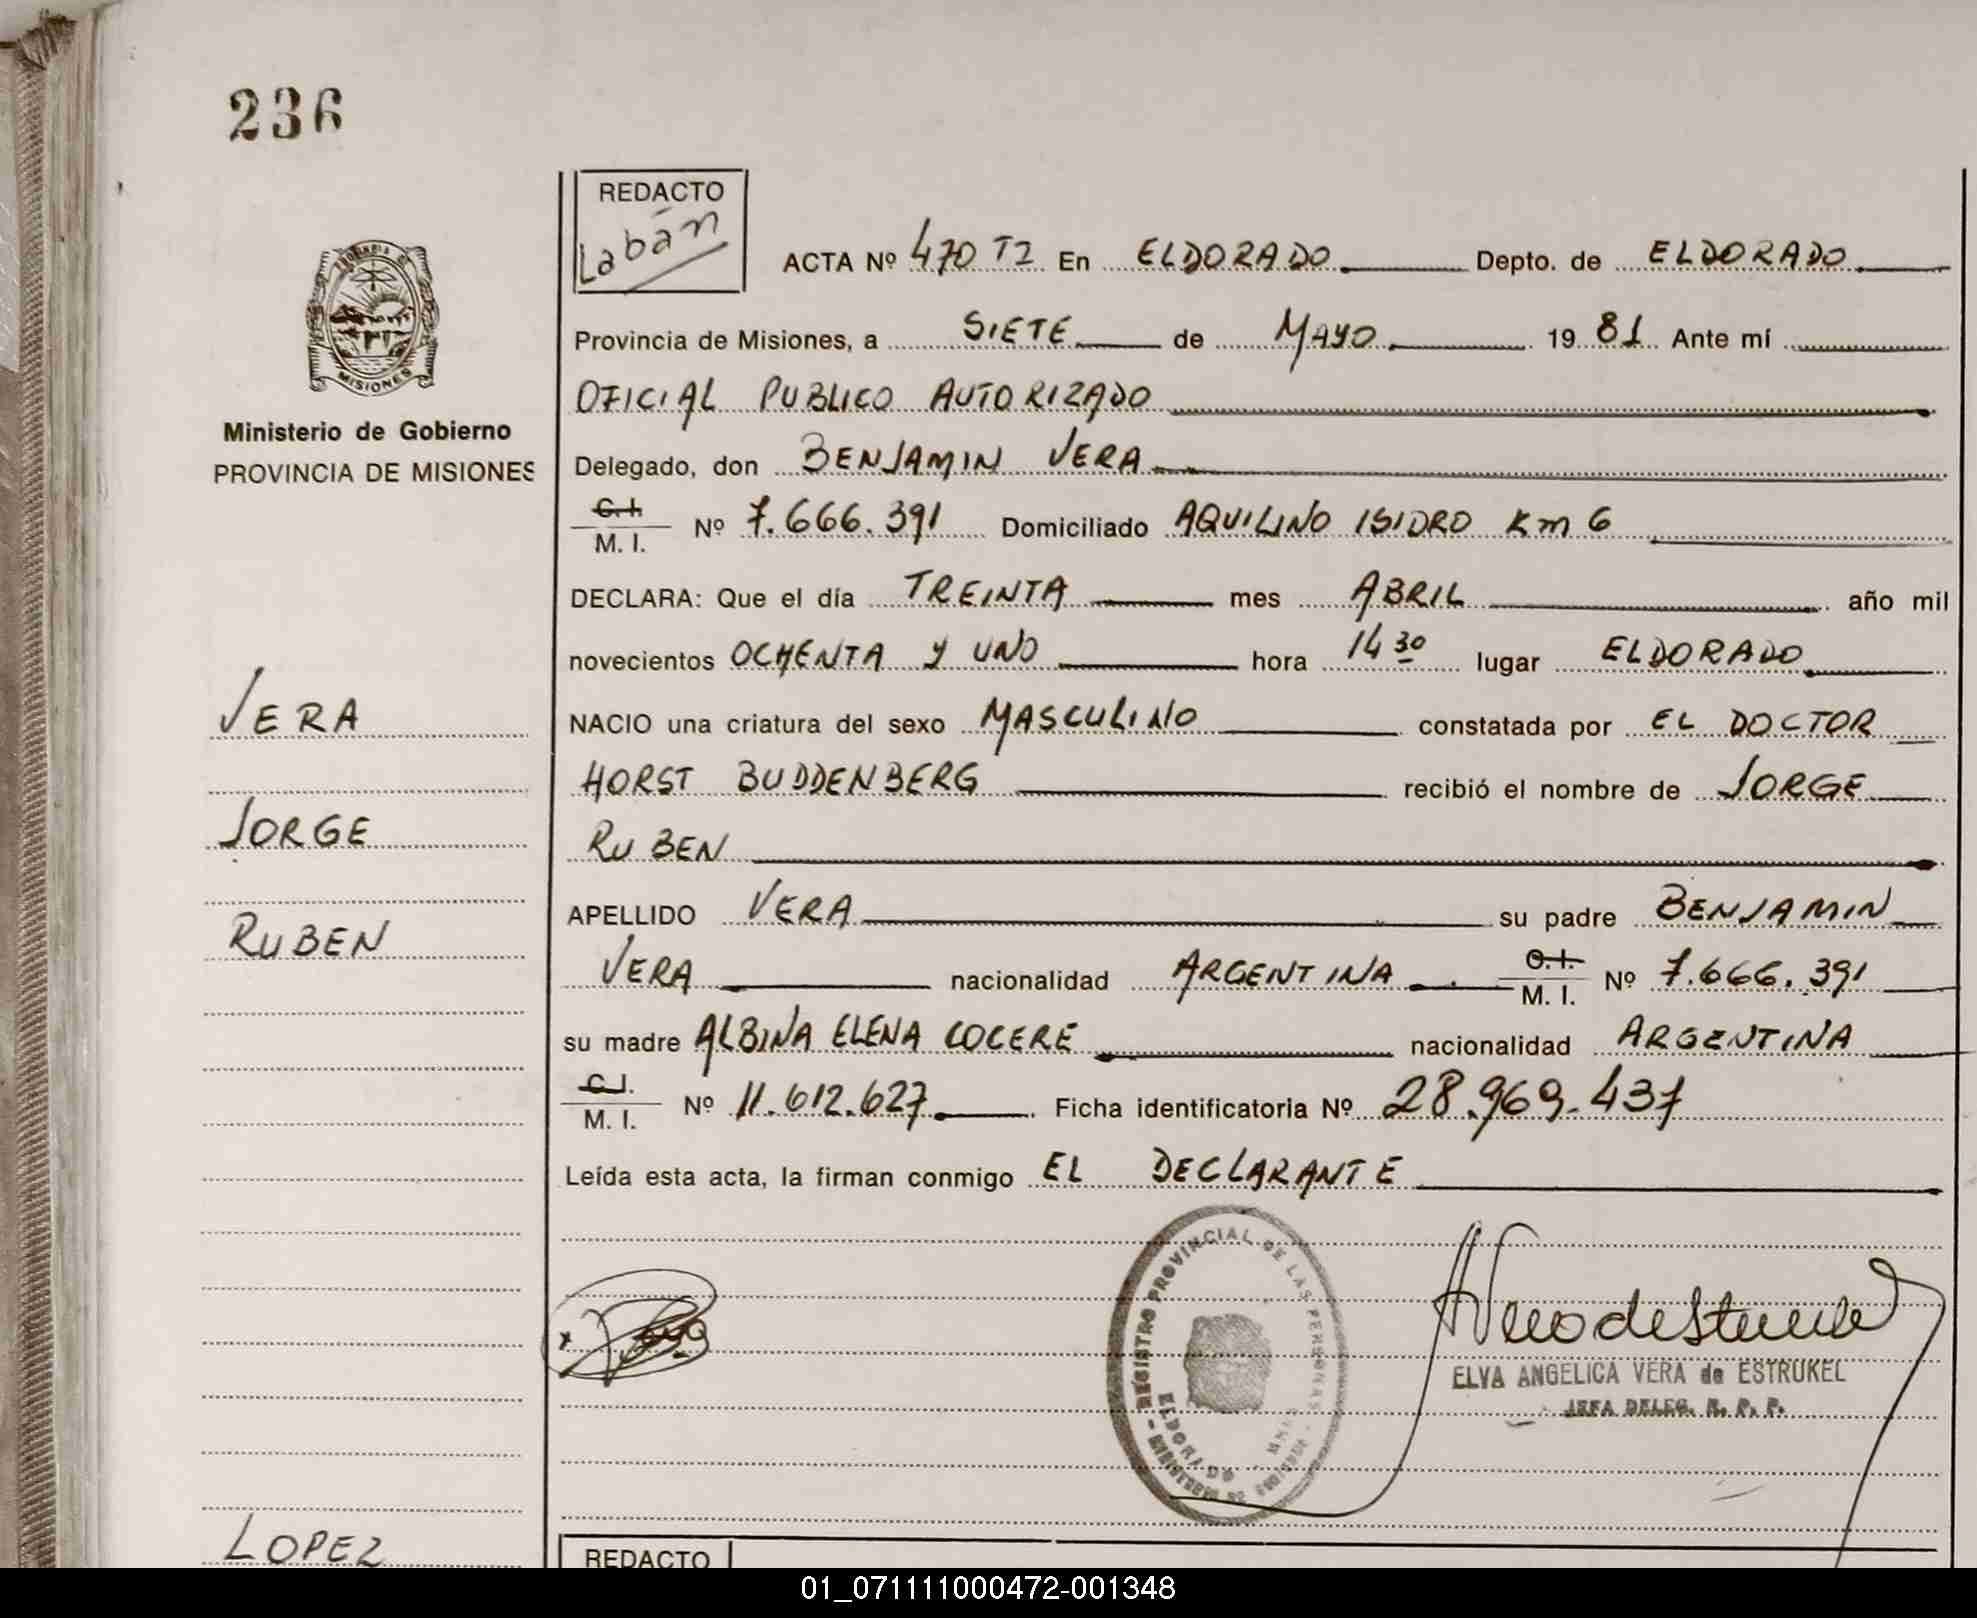 236
REDACTO
Labán
PROVINCIA DE
MISIONES
Ministerio de Gobierno
PROVINCIA DE MISIONES
ACTA Nº 470 T2 En ELDORADO Depto. de ELDORADO
Provincia de Misiones, a SIETE de MAYO 1981 Ante mí
OFICIAL PUBLICO AUTORIZADO
Delegado, don BENJAMIN VERA
C. I.
M. I. Nº 7.666.391 Domiciliado AQUILINO ISIDRO Km 6
DECLARA: Que el día TREINTA mes ABRIL año mil
novecientos OCHENTA Y UNO hora 14 30 lugar ELDORADO
NACIO una criatura del sexo MASCULINO constatada por EL DOCTOR
HORST BUDDENBERG recibió el nombre de JORGE
RUBEN
APELLIDO VERA su padre BENJAMIN
VERA nacionalidad ARGENTINA C. I. M. I. Nº 7.666.391
su madre ALBINA ELENA COCERE nacionalidad ARGENTINA
C. I.
M. I. Nº 11.612.627 Ficha identificatoria Nº 28.969.437
Leída esta acta, la firman conmigo EL DECLARANTE
VERA
JORGE
RUBEN
REGISTRO PROVINCIAL DE LAS PERSONAS
ELDORADO
ELVA ANGELICA VERA de ESTRUKEL
JEFA DELEG. R. P. P.
LOPEZ
REDACTO
01_071111000472-001348